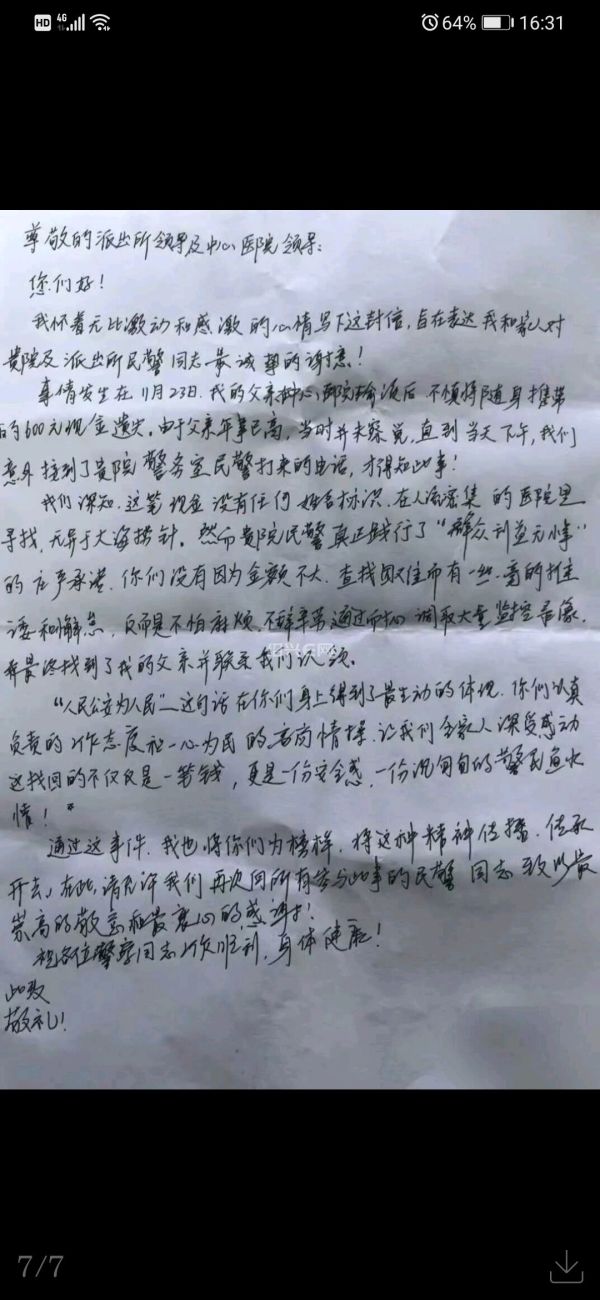 HD 4G 64% 16:31
尊敬的派出所领导及中心医院领导:
您们好!
我怀着无比激动和感激的心情写下这封信,旨在表达我和家人对
贵院及派出所民警同志最诚挚的谢意!
事情发生在11月23日.我的父亲在中心医院输液后不慎将随身携带
的600元现金遗失.由于父亲年事已高,当时并未察觉,直到当天下午,我们
意外接到了贵院警务室民警打来的电话,才得知此事!
我们深知.这笔现金没有任何姓名标识.在人流密集的医院里
寻找,无异于大海捞针.然而贵院民警真正践行了"群众利益无小事"
的庄严承诺.你们没有因为金额不大.查找困难而有一丝一毫的推
诿和懈怠,反而是不怕麻烦.不辞辛劳通过 调取大量监控录像.
并最终找到了我的父亲并联系我们认领.
"人民公安为人民"—这句话在你们身上得到了最生动的体现.你们认真
负责的工作态度和一心为民的高尚情操.让我们全家人深受感动
这找回的不仅仅是一笔钱,更是一份安全感,一份沉甸甸的警民鱼水
情!"
通过这事件.我也将你们为榜样.将这种精神传播.传承
开去,在此,请允许我们再次向所有参与此事的民警同志致以最
崇高的敬意和最衷心的感谢!
祝各位警察同志工作顺利,身体健康!
此致
敬礼!
7/7